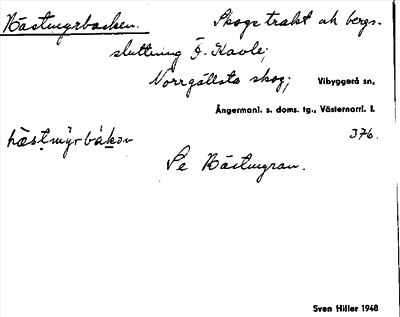 Hästmyrbacken. Skogstrakt och bergs-
sluttning Ö. Kavle;
Norrgällsta skog; Vibyggerå sn,
Ångermanl. s. doms. tg., Västernorrl. l.
hästmyrbakɐn 376.
Se Hästmyran.
Sven Hiller 1948